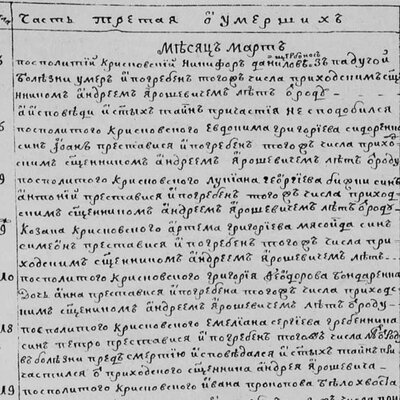 Часть третая ѿ умершихъ
Мѣсяцъ Мартъ
посполитій Крисковскій Никифор Данилов з падучой
болѣзни умер и погребен тогож числа приходским сщен
ником Андреем Ярошевичем лѣт ѿроду
а исповѣди и стых тайн причастія не сподобился
6 посполитого Крисковского Евдокима григоріева
син Іоан преставися и погребен тогож числа прихо
ским сщенником Андреем Ярошевичем лѣт ѿроду
9 посполитого Крисковского Лукіана георгіева син
антоній преставися и погребен тогож числа приход
ским сщенником андреем Ярошевичем лѣт ѿроду
9 Козака Крисковского артема григоріева син
симеон преставися и погребен тогож числа при
ходским сщенником андреем Ярошевичем лѣт
10 посполитого Крисковского григорія Ѳеодорова бондаренка
дочь анна преставися и погребена тогож числа приход
ским сщенником андреем Ярошевичем лѣт ѿроду
18 посполитого Крисковского Емеліана сергіева гребенника
син петро преставися и погребен тогож числа
в болѣзни пред смертію исповѣдался и стых тайн при
частился ѿ приходского сщенника андрея Ярошевича
19 посполитого Крисковского ивана прокопова